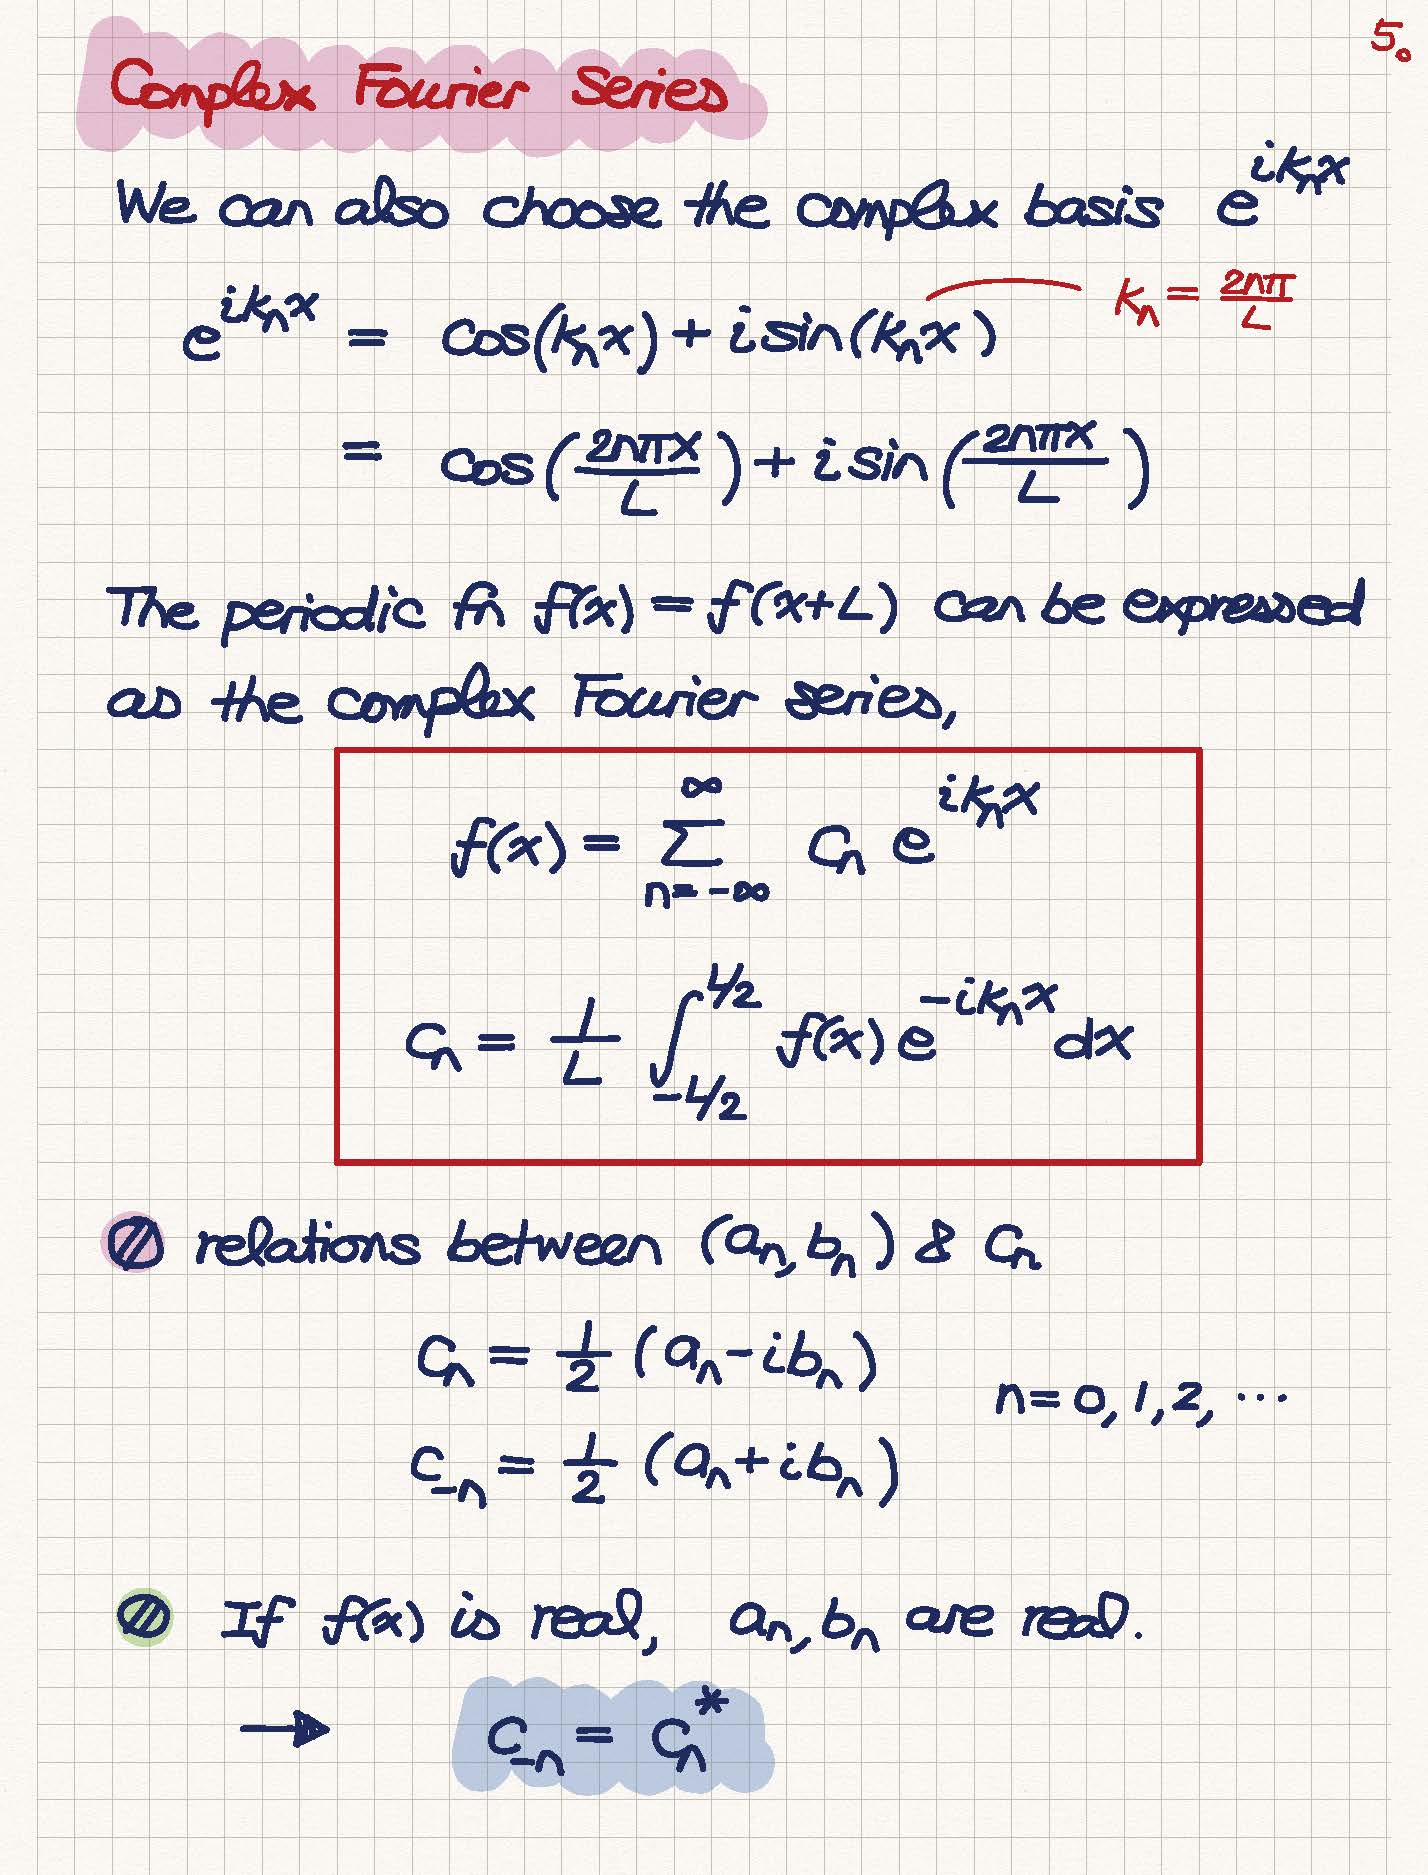 5.
Complex Fourier Series
We can also choose the complex basis e^{ik_n x}
e^{ik_n x} = cos(k_n x) + i sin(k_n x)    k_n = \frac{2nπ}{L}
= cos(\frac{2nπx}{L}) + i sin(\frac{2nπx}{L})
The periodic fn f(x) = f(x+L) can be expressed
as the complex Fourier series,
f(x) = \sum_{n=-∞}^{∞} C_n e^{ik_n x}
C_n = \frac{1}{L} \int_{-L/2}^{L/2} f(x) e^{-ik_n x} dx
relations between (a_n, b_n) & C_n
C_n = \frac{1}{2} (a_n - ib_n)
n = 0, 1, 2, ...
C_{-n} = \frac{1}{2} (a_n + ib_n)
If f(x) is real, a_n, b_n are real.
→ C_{-n} = C_n^*